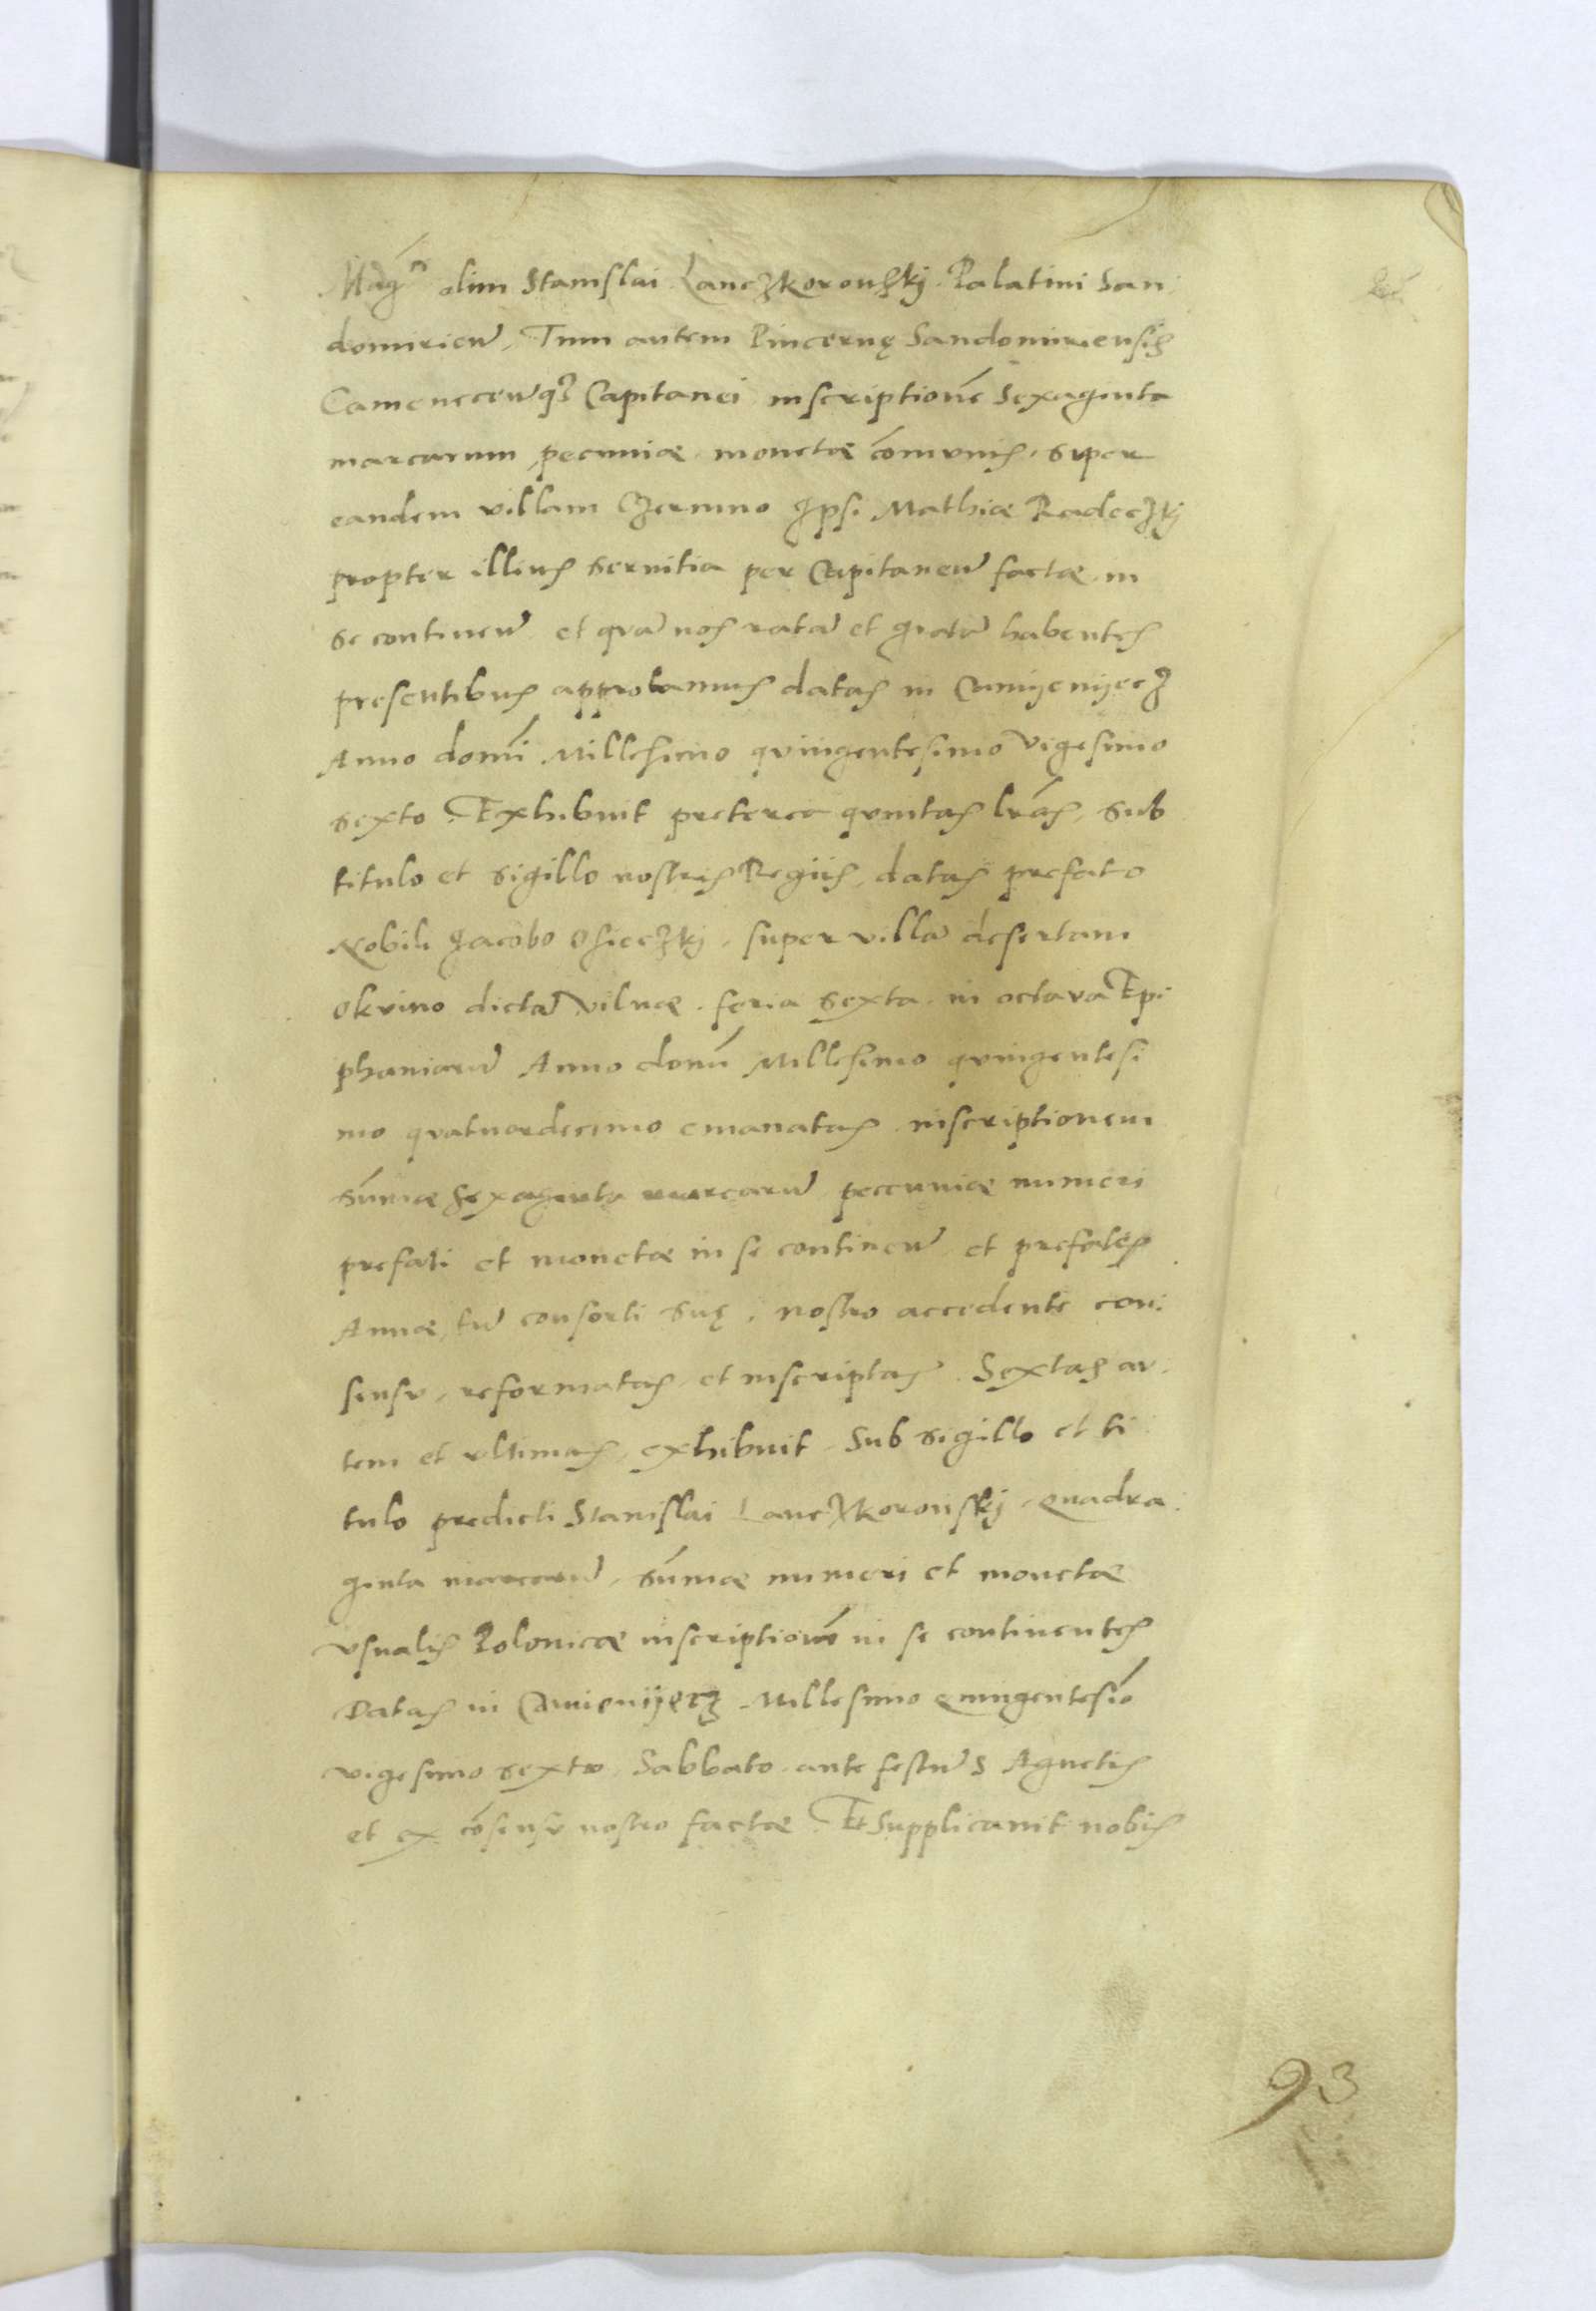 Mag^ci olim Stanislai Lanczkorouskj Palatini San
domirien̄, Tum autem Pincernę Sandomiriensis
Camenecen̄q3 Capitanei inscriptionē Sexaginta
marcarum pecuniæ monetæ com̄unis, super
eandem villam Czernno Ipsi Mathiæ Radeczkj
propter illius seruitia per Capitaneū factæ in
se continen̄ et quā nos ratā et gratā habentes
presentibus approbamus datas in Camyenyecz
Anno domī Millesimo quingentesimo vigesimo
sexto. Exhibuit preterea quintas lr̄as, sub
titulo et sigillo nostris Regijs, datas prefato
Nobili Jacobo Osieczkj, super villā desertam
Okrino dictā Vilnæ feria sexta in octava Epi
phaniarū Anno domī Millesimo quingentesi
mo quatuordecimo emanatas inscriptionem
Sum̄æ Sexaginta marcarū peccuniæ numeri
prefati et monetæ in se continen̄ et prefatę
Annæ, tū consorti suę, nostro accedente con
sensu, reformatas, et inscriptas. Sextas au
tem et vltimas, exhibuit, Sub sigillo et ti
tulo predicti Stanislai Lanczkorouskj, Quadra
ginta marcarū, Sum̄æ numeri et monetæ
vsualis Polonicæ inscriptionē in se continentes
Datas in Camienyecz Millesimo Quingentesīo
vigesimo sexto, Sabbato ante festū S Agnetis
et ex cōsensu nostro factæ. Et Supplicauit nobis
93